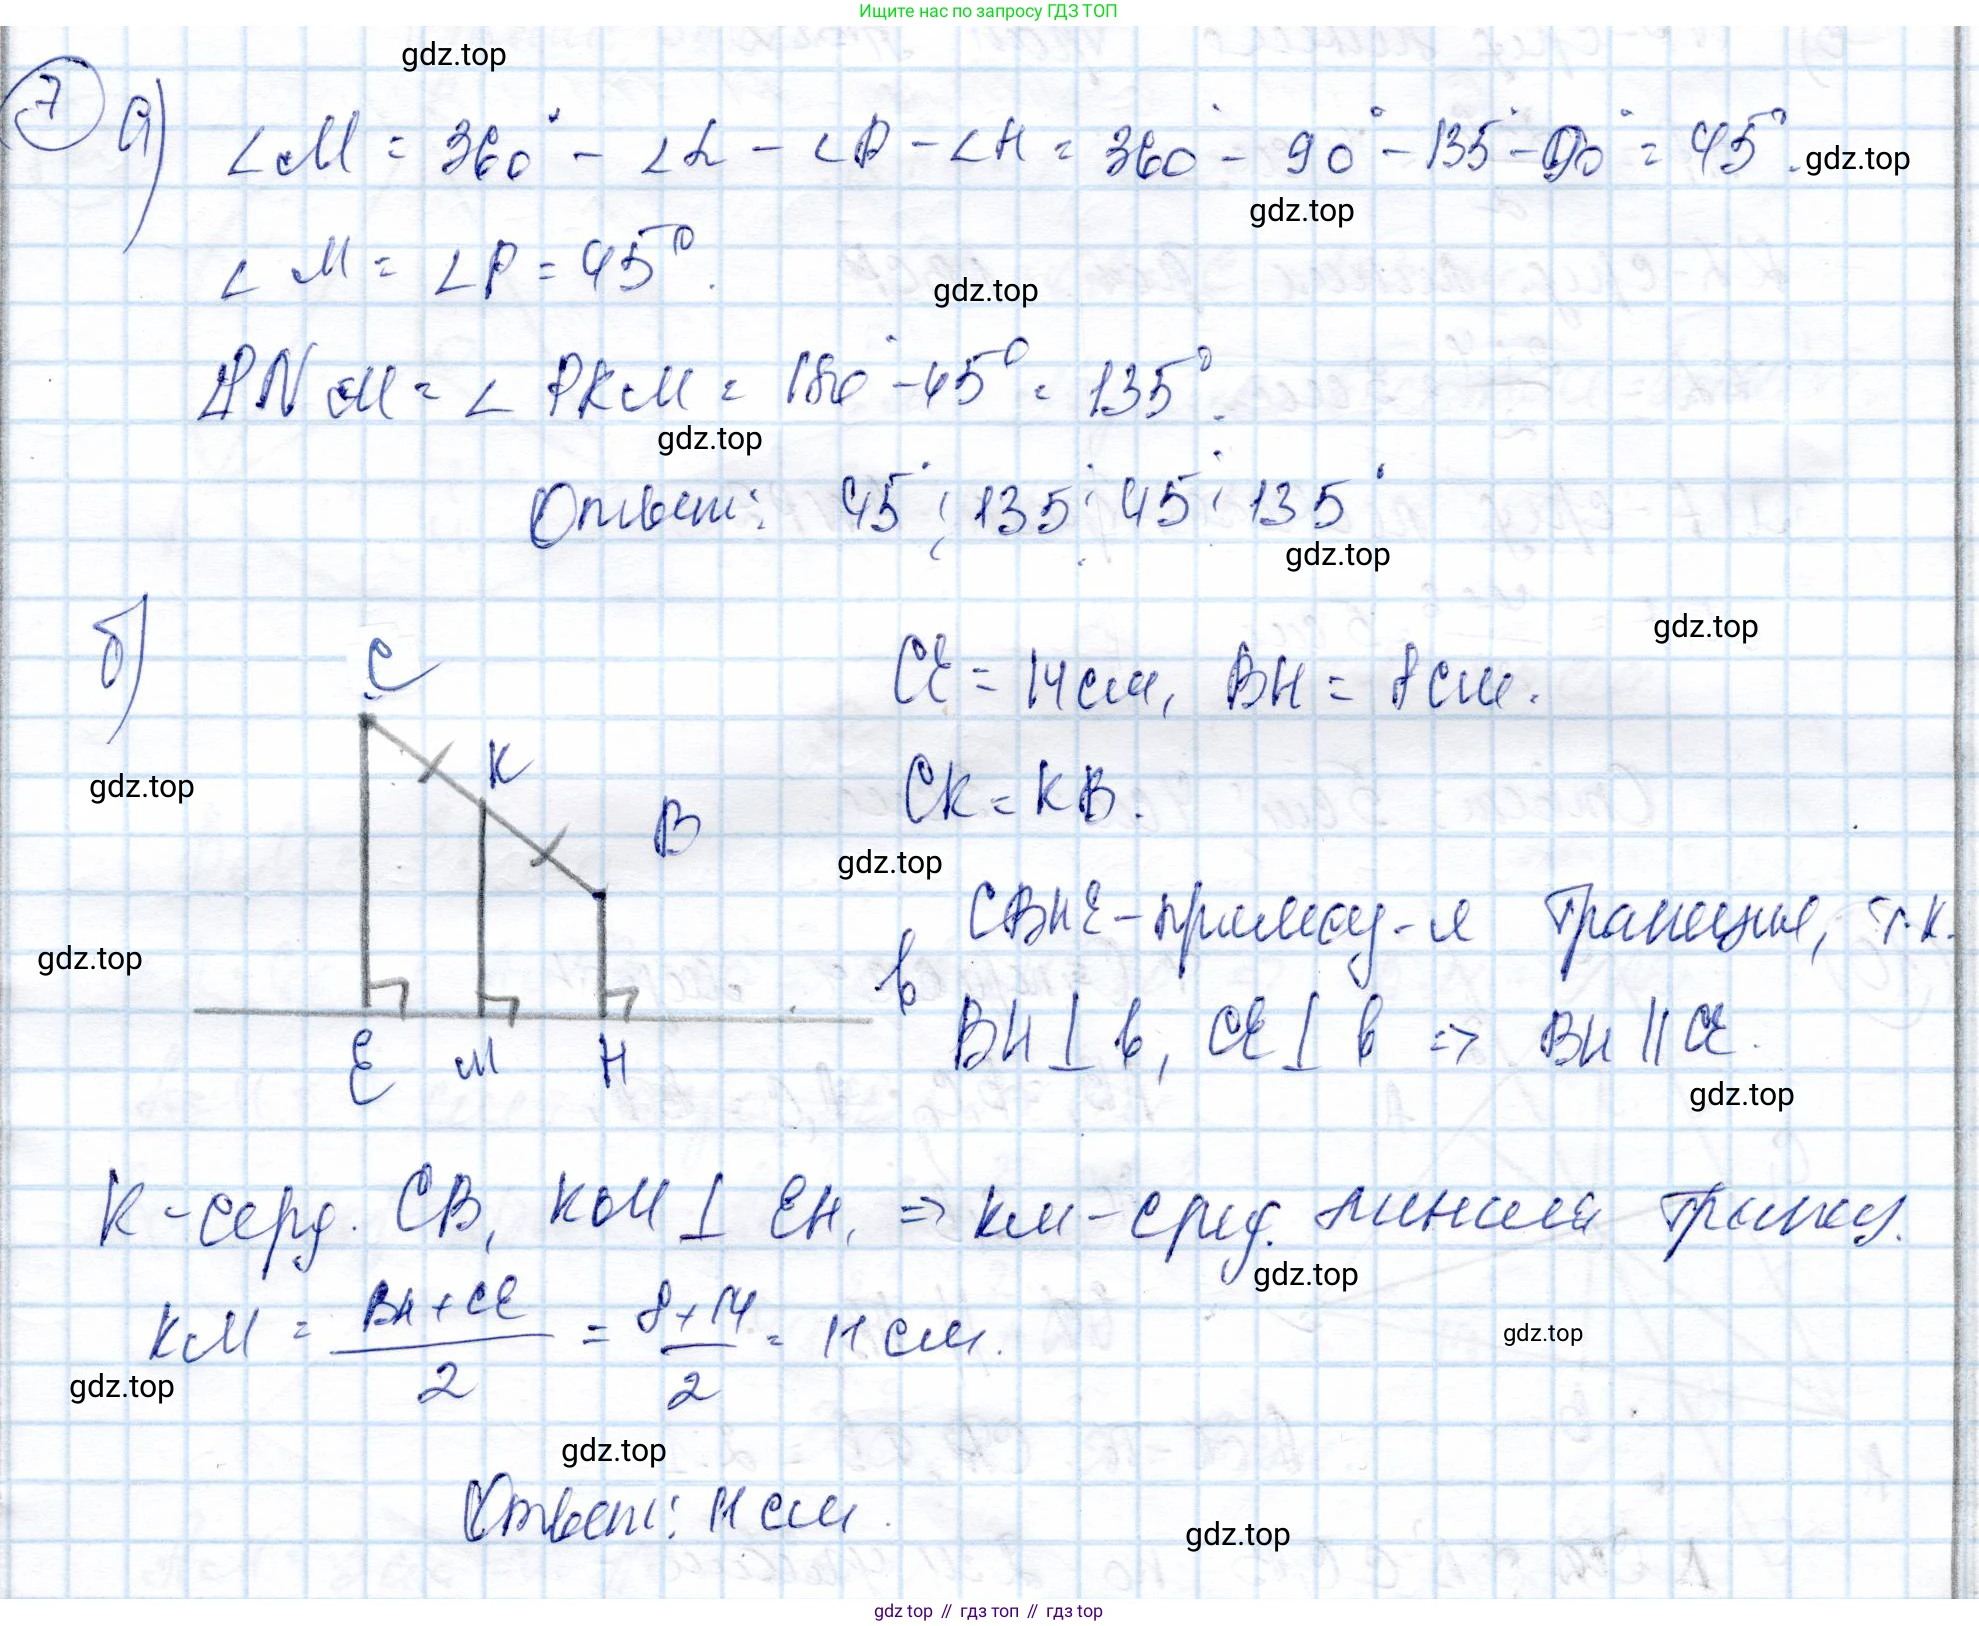 Ищите нас по запросу ГДЗ ТОП
gdz.top
7 а) ∠M = 360° - ∠L - ∠A - ∠H = 360° - 90° - 135° - 90° = 45°.
gdz.top
gdz.top
∠M = ∠P = 45°.
gdz.top
∠PNM = ∠PKM = 180° - 45° = 135°.
gdz.top
Ответ: 45°; 135°; 45°; 135°
gdz.top
б)
gdz.top
C
CE = 14 см, BH = 8 см.
K
CK = KB.
gdz.top
B
gdz.top
CBHE - прямоуг-я трапеция, т.к.
gdz.top
в
BH ⊥ в, CE ⊥ в => BH || CE.
E M H
gdz.top
K - серд. CB, KM ⊥ EH, => KM - сред. линия трапец.
gdz.top
KM = (BH + CE)/2 = (8 + 14)/2 = 11 см.
gdz.top
gdz.top
gdz.top
Ответ: 11 см.
gdz.top
gdz top // гдз топ // гдз top